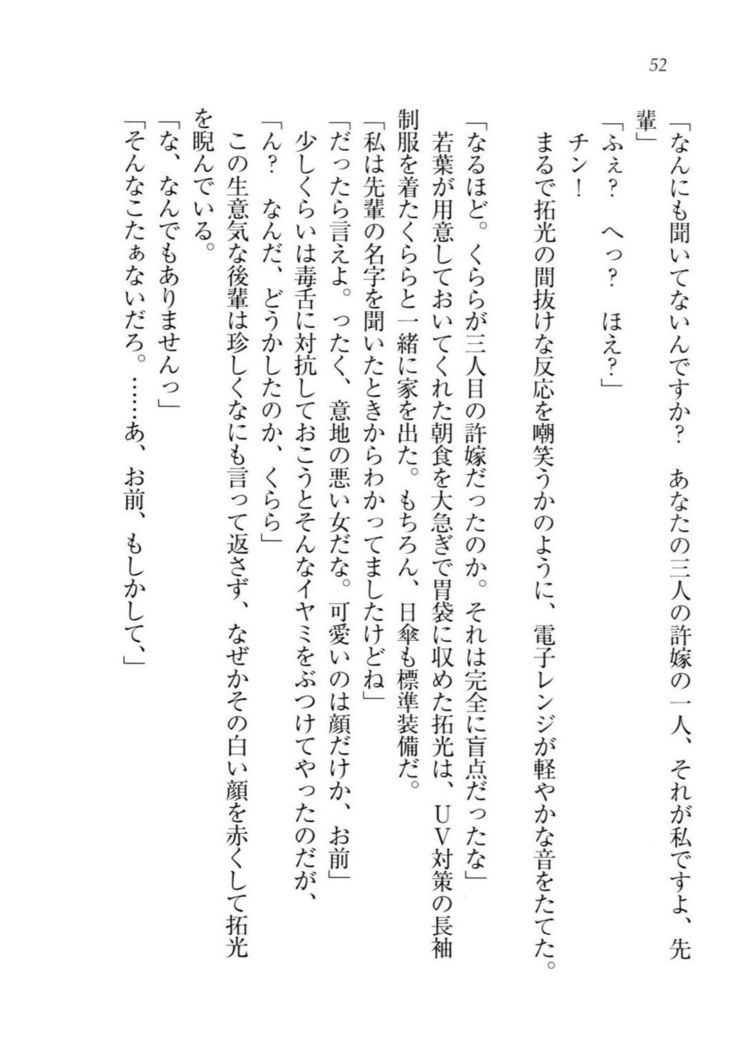 52
「なんにも聞いてないんですか？　あなたの三人の許嫁の一人、それが私ですよ、先
輩」
「ふぇ？　へっ？　ほえ？」
　チン！
　まるで拓光の間抜けな反応を嘲笑うかのように、電子レンジが軽やかな音をたてた。
「なるほど。くららが三人目の許嫁だったのか。それは完全に盲点だったな」
　若葉が用意しておいてくれた朝食を大急ぎで胃袋に収めた拓光は、ＵＶ対策の長袖
制服を着たくららと一緒に家を出た。もちろん、日傘も標準装備だ。
「私は先輩の名字を聞いたときからわかってましたけどね」
「だったら言えよ。ったく、意地の悪い女だな。可愛いのは顔だけか、お前」
　少しくらいは毒舌に対抗しておこうとそんなイヤミをぶつけてやったのだが、
「ん？　なんだ、どうかしたのか、くらら」
　この生意気な後輩は珍しくなにも言って返さず、なぜかその白い顔を赤くして拓光
を睨んでいる。
「な、なんでもありませんっ」
「そんなこたぁないだろ。……あ、お前、もしかして、」